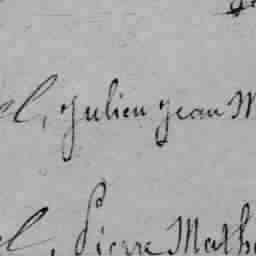 el, Julien Jean M
el, Pierre Math